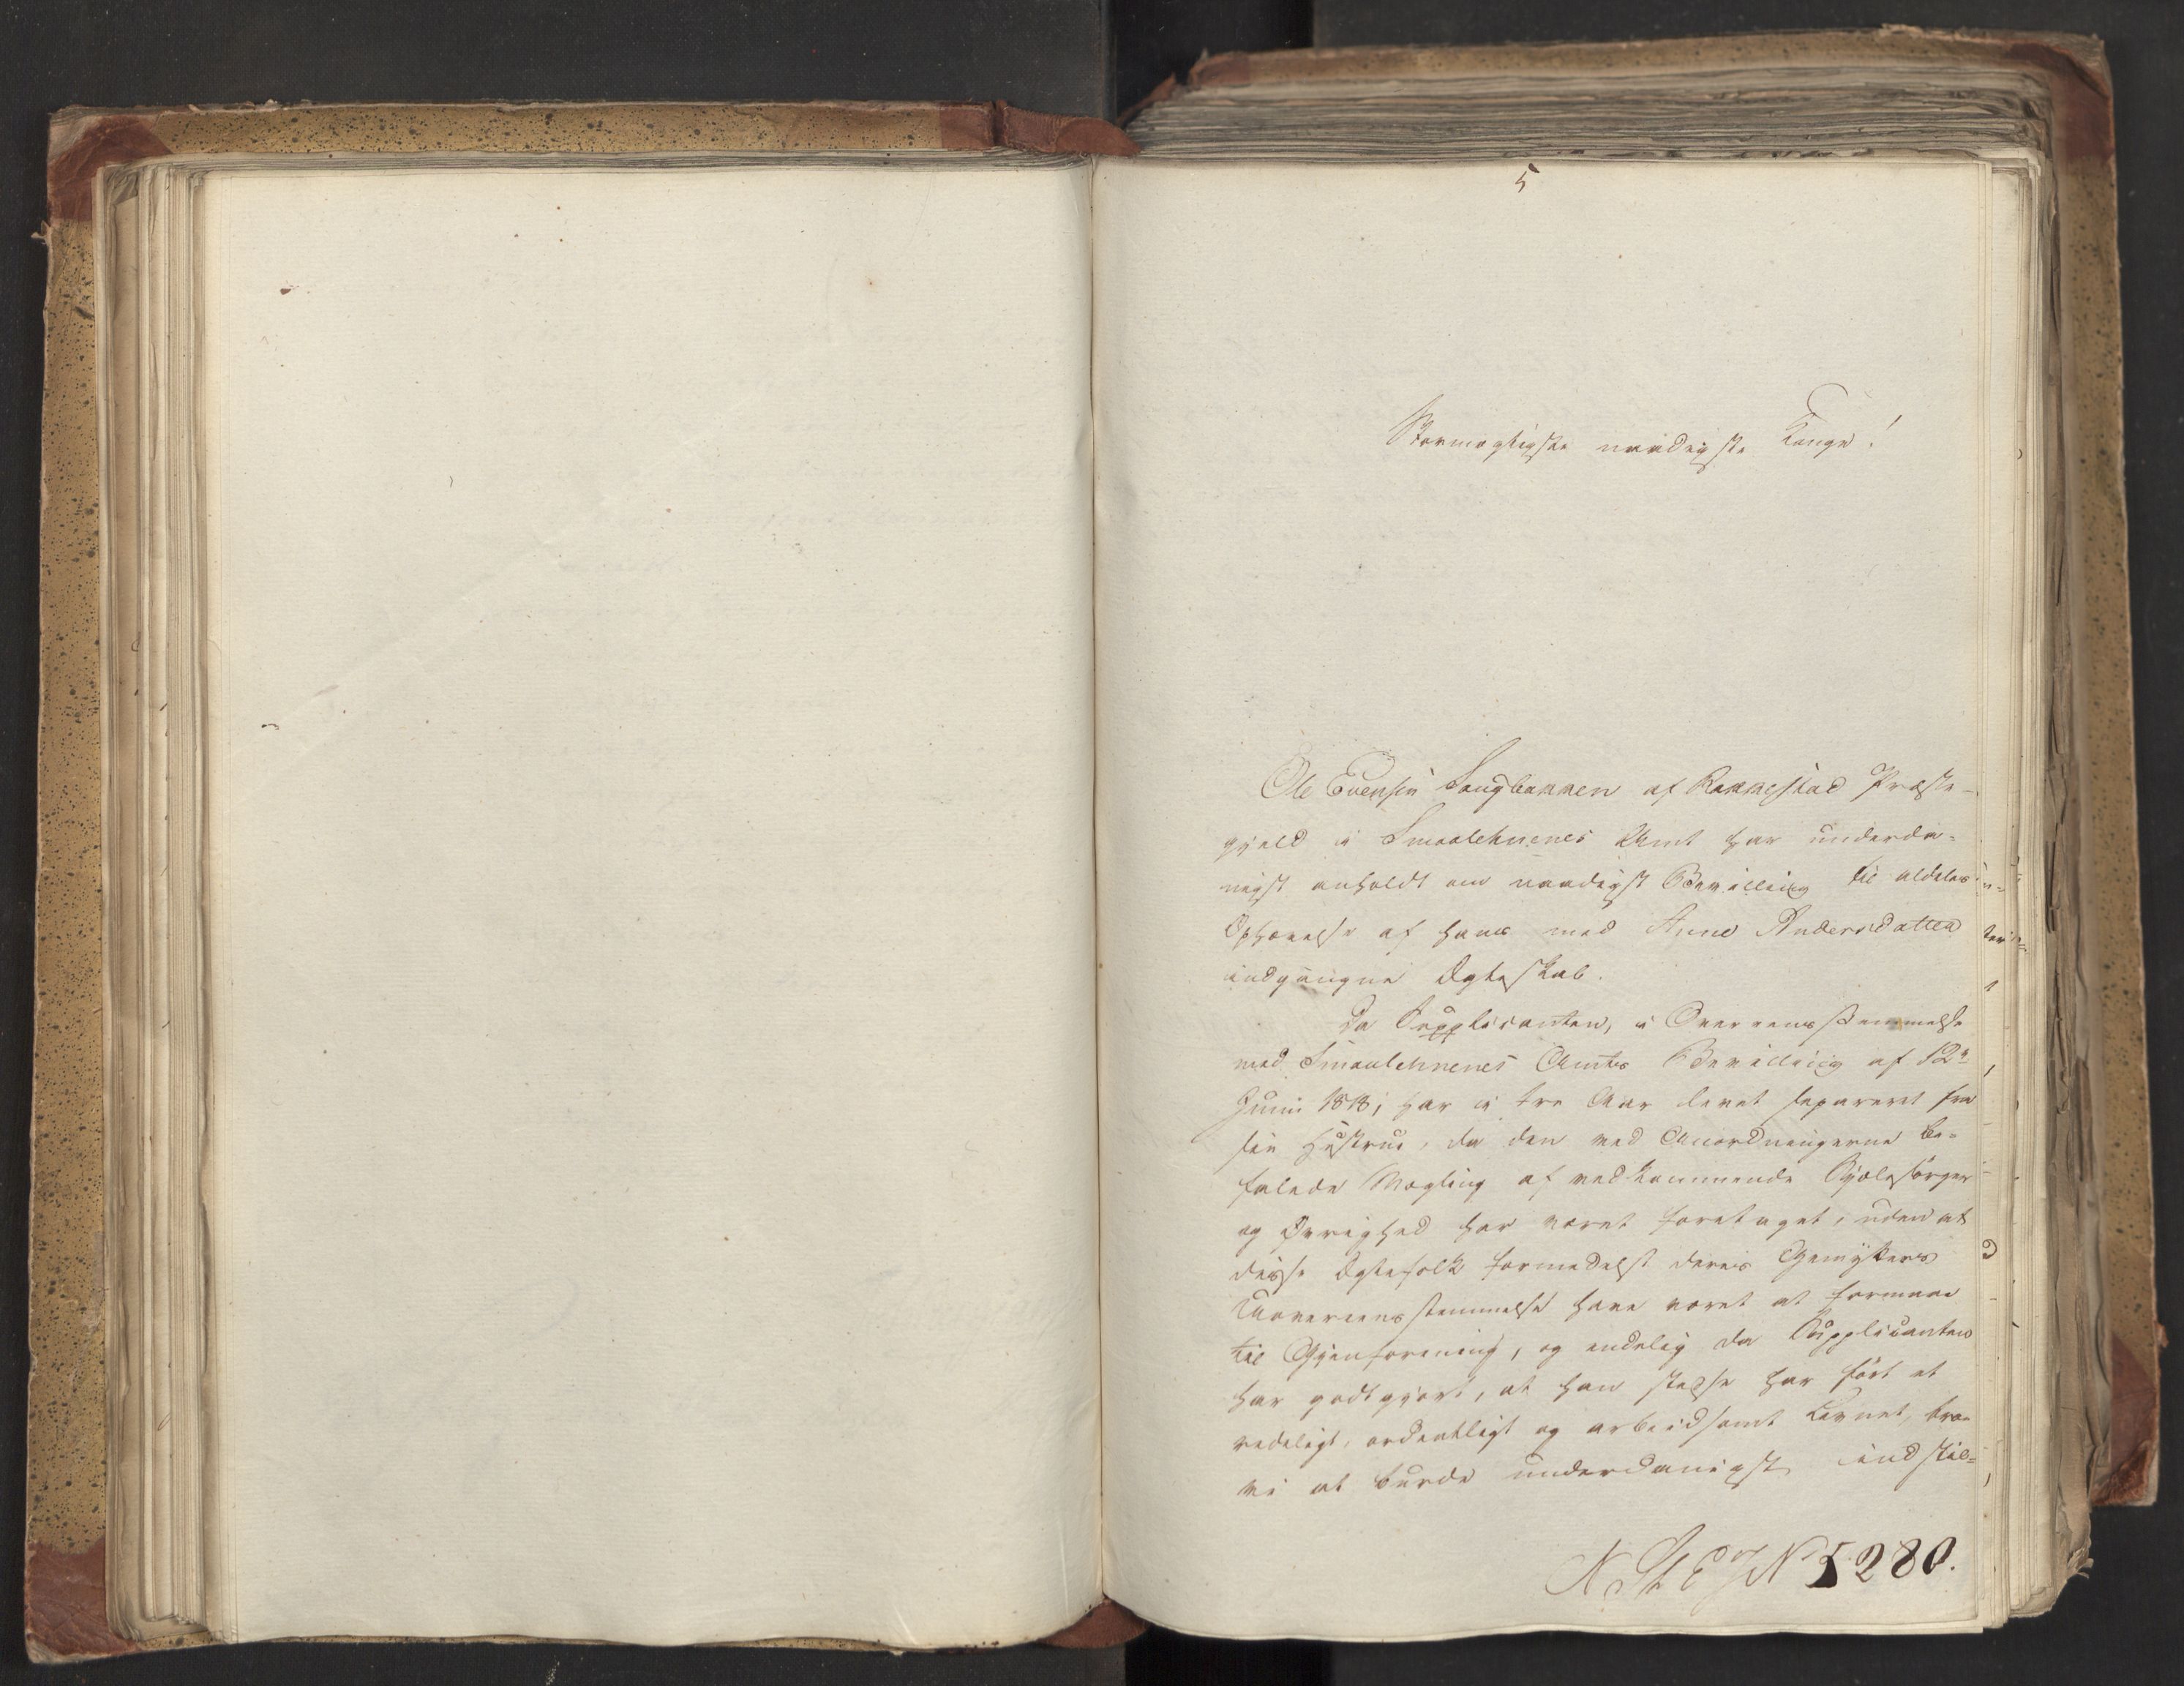 5
Stormægtigste naadigste Konge!
Ole Evensen Laugbakken af Rakkestad Præste-
gjeld i Smaalehnenes Amt har underda-
nigst anholdt om naadigst Bevilling til aldeles
Ophævelse af hans med Anne Andersdatter
indgangne Ægteskab.
Da Supplicanten, i Overeensstemmelse
med Smaalehnenes Amts Bevilling af 12te
Junii 1818, har i tre Aar levet separeret fra
sin Hustrue, da den ved Anordningerne be-
falede Mægling af vedkommende Sjælesørger
og Øvrighed har været foretaget, uden at
disse Ægtefolk formedelst deres Gemytters
Uovereensstemmelse have været at formaae
til Gjenforening, og endelig da Supplicanten
har godtgjort, at han stedse har ført et
sædeligt, ordentligt og arbeidsomt Levnet, troe
vi at burde underdanigst indstil-
N. St. E. J. N 5280.